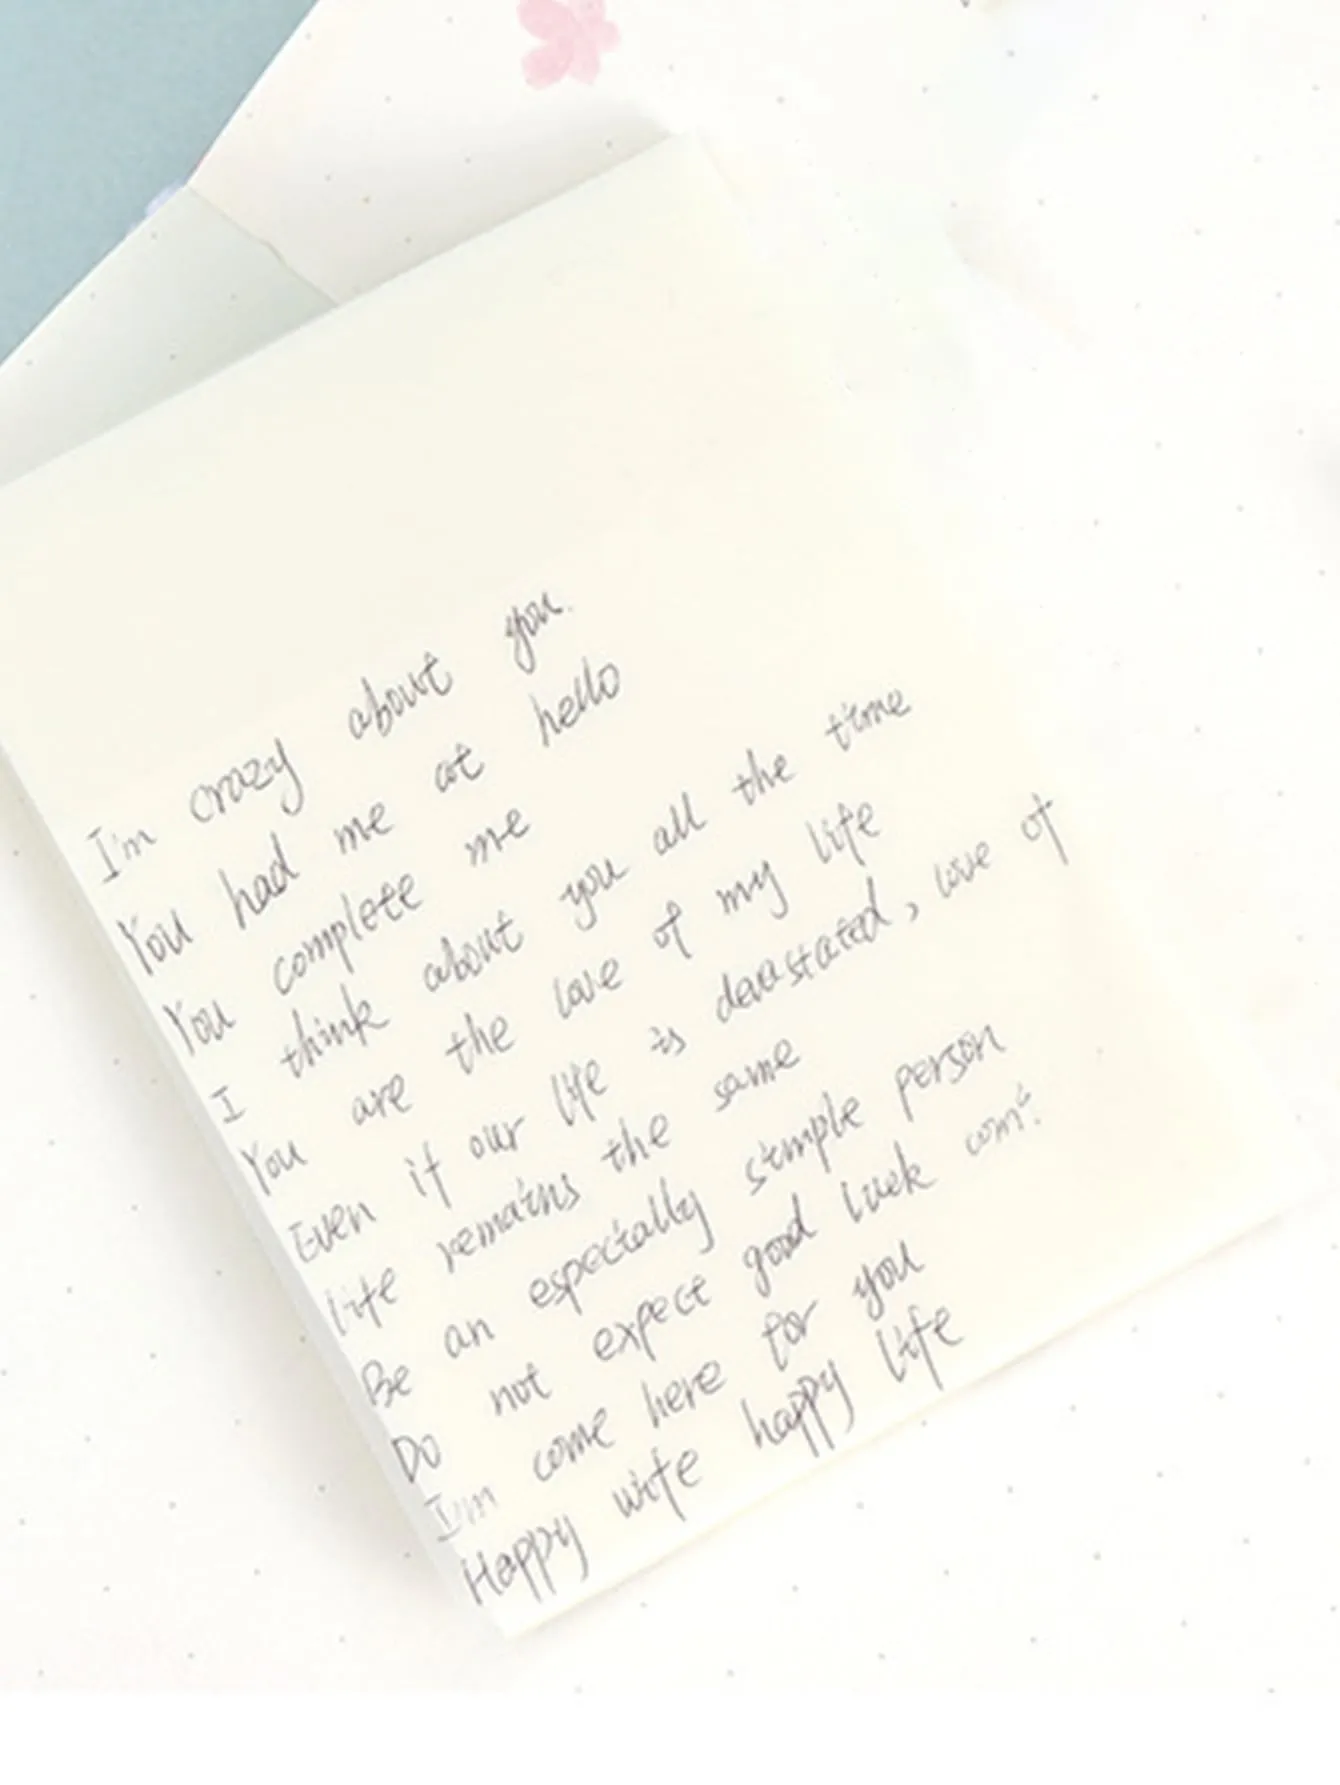 I'm crazy about you.
You had me at hello
You complete me
I think about you all the time
You are the love of my life
Even if our life is devastated, love of
life remains the same
Be an especially simple person
Do not expect good luck
I'm come here for you
Happy wife happy life